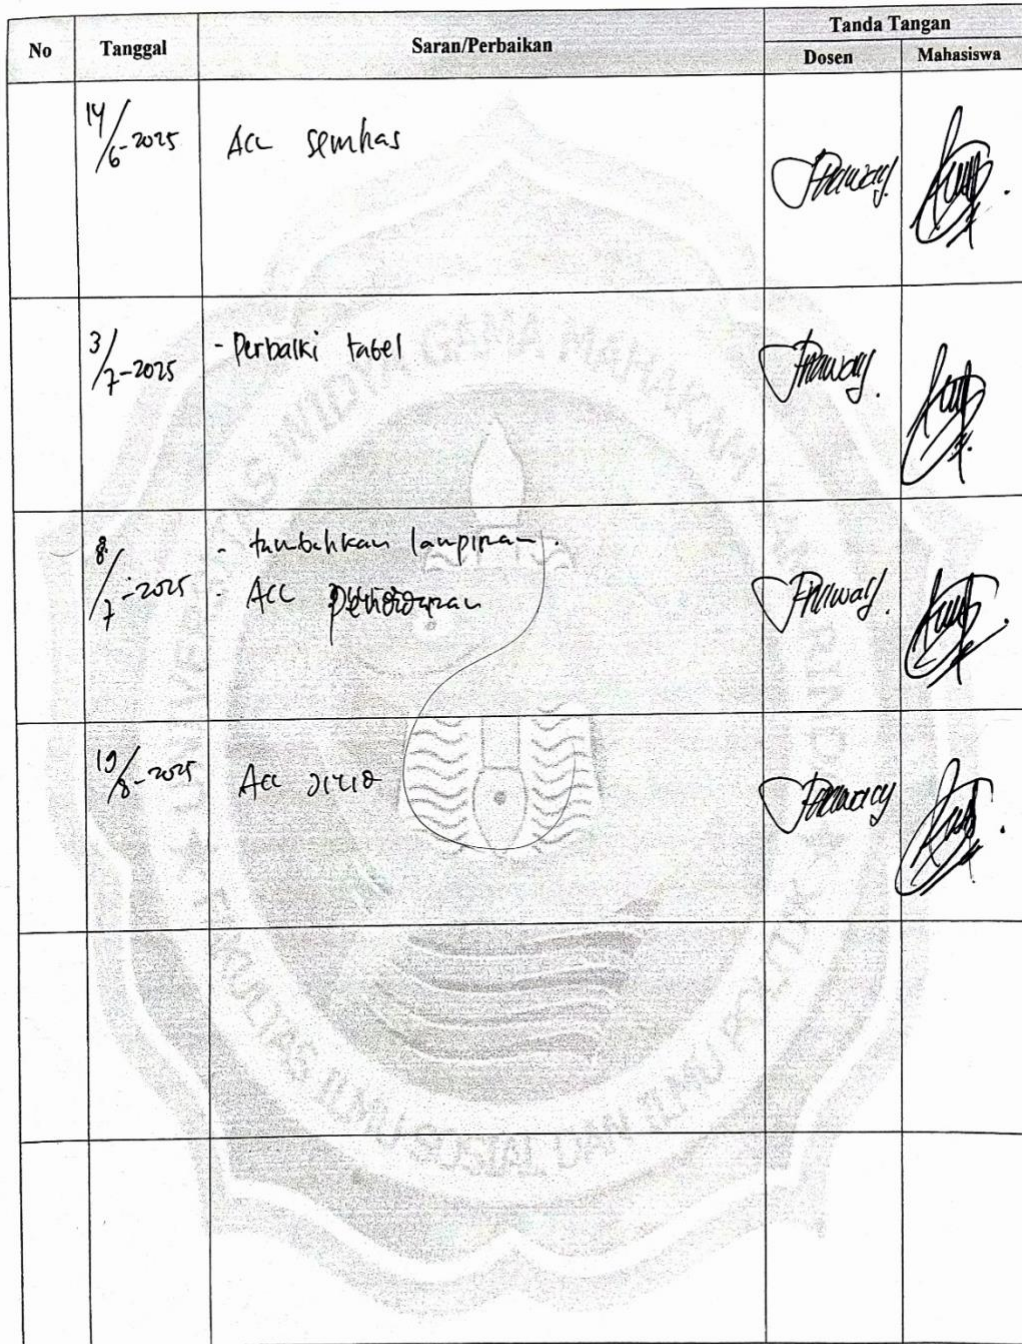 No Tanggal Saran/Perbaikan Tanda Tangan
Dosen Mahasiswa
14/6-2025 Acc semhas
3/7-2025 - Perbaiki tabel
8/7-2025 - tambahkan lampiran.
- Acc
19/8-2025 Acc
UNIVERSITAS WIDYA GAMA MAHAKAM SAMARINDA
FAKULTAS ILMU SOSIAL DAN ILMU POLITIK